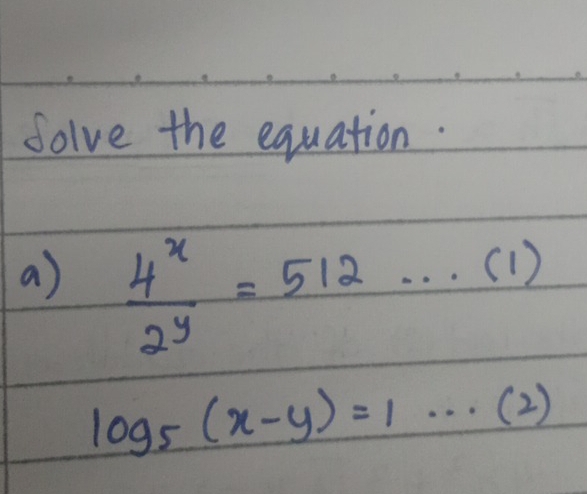 Solve the equation.
a) 4^x / 2^y = 512 ... (1)
log₅ (x-y) = 1 ... (2)